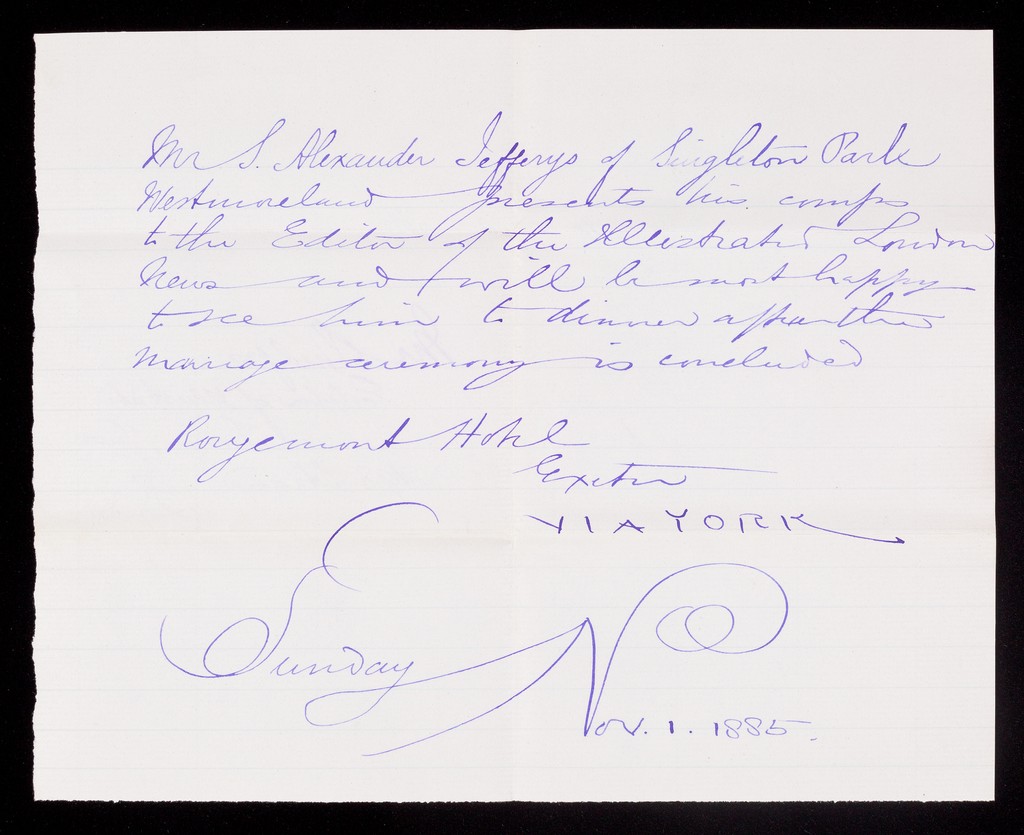 Mr S. Alexander Jefferys of Singleton Park
Westmoreland presents his comps
to the Editor of the Illustrated London
News and will be most happy
to see him to dinner after the
marriage ceremony is concluded
Rougemont Hotel
Exeter
VIA YORK
Sunday
Nov. 1. 1885.